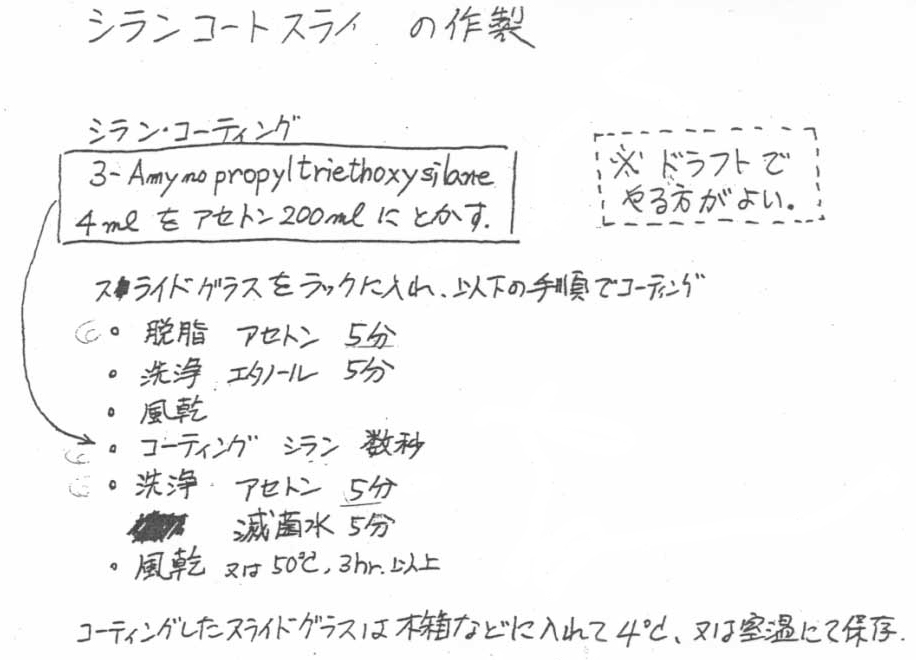 シランコートスライ の作製
シラン・コーティング
3-Amynopropyltriethoxysilane
4ml を アセトン200ml に とかす.
※ ドラフトで
やる方がよい。
スライドグラスをラックに入れ、以下の手順でコーティング
・ 脱脂 アセトン 5分
・ 洗浄 エタノール 5分
・ 風乾
・ コーティング シラン 数秒
・ 洗浄 アセトン 5分
滅菌水 5分
・ 風乾 又は 50℃, 3hr. 以上
コーティングしたスライドグラスは木箱などに入れて 4℃、又は室温にて保存.